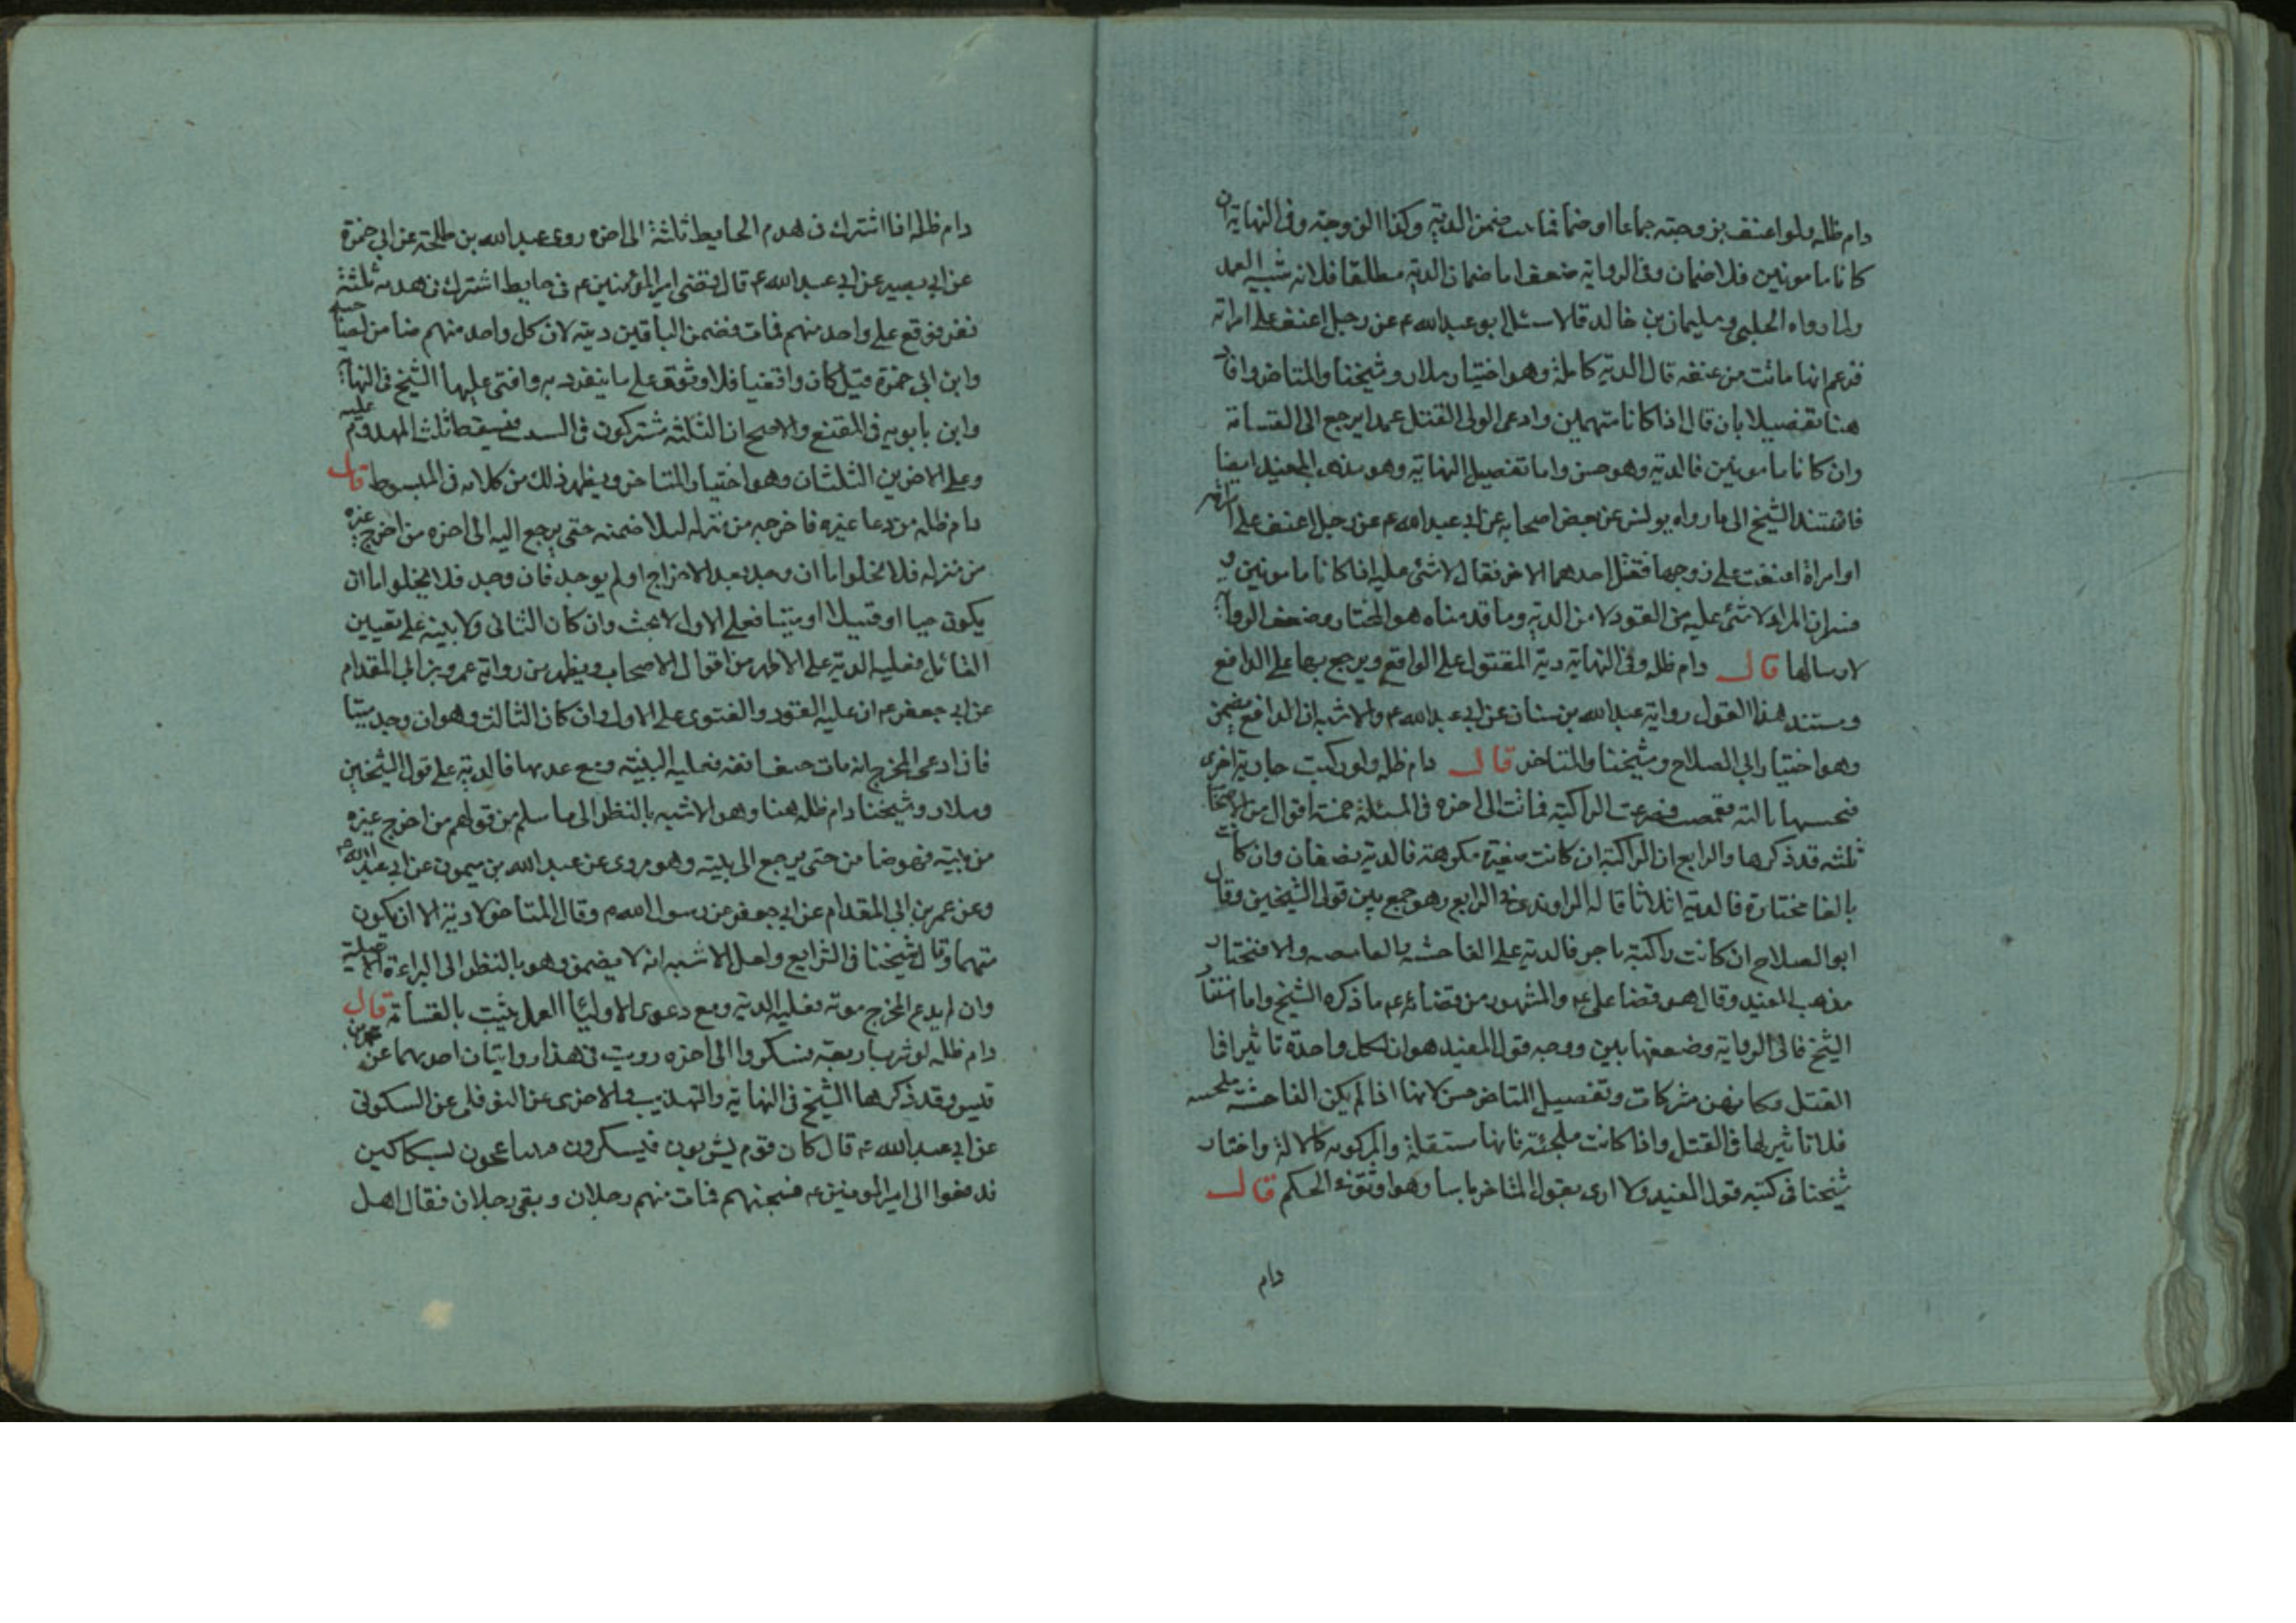 دام ظله ولو اعنف بزوجته جماعا او ضما فماتت ضمن الدية وكذا الزوجة وفي النهاية ان
كانا مامونين فلا ضمان وفي الرواية ضعف اما ضمان الدية مطلقا فلانه شبيه العمد
ولما رواه الحلبي وسليمان بن خالد قالا سئل ابو عبدالله ع عن رجل اعنف على امراته
فزعم انها ماتت من عنفه قال الدية كاملة وهو اختيار سلار وشيخنا والمتاخر وافاد
هنا تفصيلا بان قال اذا كانا متهمين وادعى الولي القتل عمدا يرجع الى القسامة
وان كانا مامونين فالدية وهو حسن واما تفصيل النهاية وهو مذهب المفيد ايضا
فاستند الشيخ الى ما رواه يونس عن بعض اصحابه عن ابي عبدالله ع عن رجل اعنف على امراته
او امراة اعنفت على زوجها فقتل احدهما الاخر فقال لا شئ عليه اذا كانا مامونين و
فسر ان المراد لا شئ عليه من القود لا من الدية وما قدمناه هو المختار وضعف الرواية
لارسالها قال دام ظله وفي النهاية دية المقتول على الواقع ويرجع بها على الدافع
ومستند هذا القول رواية عبدالله بن سنان عن ابي عبدالله ع والاشبه ان الدافع يضمن
وهو اختيار ابي الصلاح وشيخنا والمتاخر قال دام ظله ولو ركبت جارية اخرى
فنخستها ثالثة فقمصت فصرعت الراكبة فماتت الى اخره في المسئلة خمسة اقوال من الاصحاب
ثلثه قد ذكرها والرابع ان الراكبة ان كانت صغيرة مكرهة فالدية نصفان وان كانت
بالغا مختارة فالدية اثلاثا قاله الراوندي في الرابع وهو جمع بين قول الشيخين وقال
ابو الصلاح ان كانت راكبة باجر فالدية على الناخسة والقامصه والا فنختار
مذهب المفيد وقال هو قضا علي ع والمشهور من قضائه ع ما ذكره الشيخ واما استناد
الشيخ فالى الرواية وضعفها بين ووجه قول المفيد هو ان لكل واحدة تاثيرا في
القتل وكانهن مشركات وتفصيل المتاخر حسن لانها اذا لم يكن الناخسة ملجئه
فلا تاثير لها في القتل واذا كانت ملجئة فانها مستقلة والمركوبه كالالة واختار
شيخنا في كتبه قول المفيد ولا ارى بقول المتاخر باسا وهو اوثق في الحكم قال
دام
دام ظله اذا اشترك في هدم الحايط ثلثة الى اخره روى عبدالله بن طلحة عن ابي حمزة
عن ابي بصير عن ابي عبدالله ع قال قضى امير المؤمنين ع في حايط اشترك في هدمه ثلثة
نفر فوقع على واحد منهم فمات فضمن الباقين ديته لان كل واحد منهم ضامن لصاحبه
وابن ابي حمزة قيل كان واقفيا فلا وثوق على ما ينفرد به وافتى عليها الشيخ في النهاية
وابن بابويه في المقنع والاصح ان الثلثه مشتركون في السبب فيسقط ثلث المهدوم عليه
وعلى الاخرين الثلثان وهو اختيار المتاخر ويظهر ذلك من كلامه في المبسوط قال
دام ظله من دعا غيره فاخرجه من منزله ليلا ضمنه حتى يرجع اليه الى اخره من اخرج غيره
من منزله فلا يخلوا اما ان وجد بعد الاخراج او لم يوجد فان وجد فلا يخلوا اما ان
يكون حيا او قتيلا او ميتا فعلى الاول لا بحث وان كان الثاني ولا بينه على تعيين
القاتل فعليه الدية على الاظهر من اقوال الاصحاب ويظهر من رواية عمرو بن ابي المقدام
عن ابي جعفر ع ان عليه القود والفتوى على الاول وان كان الثالث وهو ان وجد ميتا
فان ادعى المخرج انه مات حتف انفه فعليه البينه ومع عدمها فالدية على قول الشيخين
وسلار وشيخنا دام ظله هنا وهو الاشبه بالنظر الى ما سلم من قولهم من اخرج غيره
من بيته فهو ضامن حتى يرجع الى بيته وهو مروي عن عبدالله بن ميمون عن ابي عبدالله ع
وعن عمر بن ابي المقدام عن ابي جعفر عن رسول الله ص وقال المتاخر لا دية الا ان يكون
متهما وقال شيخنا في الشرايع ولعل الاشبه انه لا يضمن وهو بالنظر الى البراءة الاصلية
وان لم يدع المخرج موته فعليه الدية ومع دعوى الاولياء العمل يثبت بالقسامة قال
دام ظله لو شرب اربعة فسكروا الى اخره رويت في هذا روايتان احديهما عن محمد بن
قيس وقد ذكرها الشيخ في النهاية والتهذيب والاخرى عن النوفلي عن السكوني
عن ابي عبدالله ع قال كان قوم يشربون فيسكرون فتباعجون بسكاكين
فدفعوا الى امير المومنين ع فسجنهم فمات منهم رجلان وبقى رجلان فقال اهل